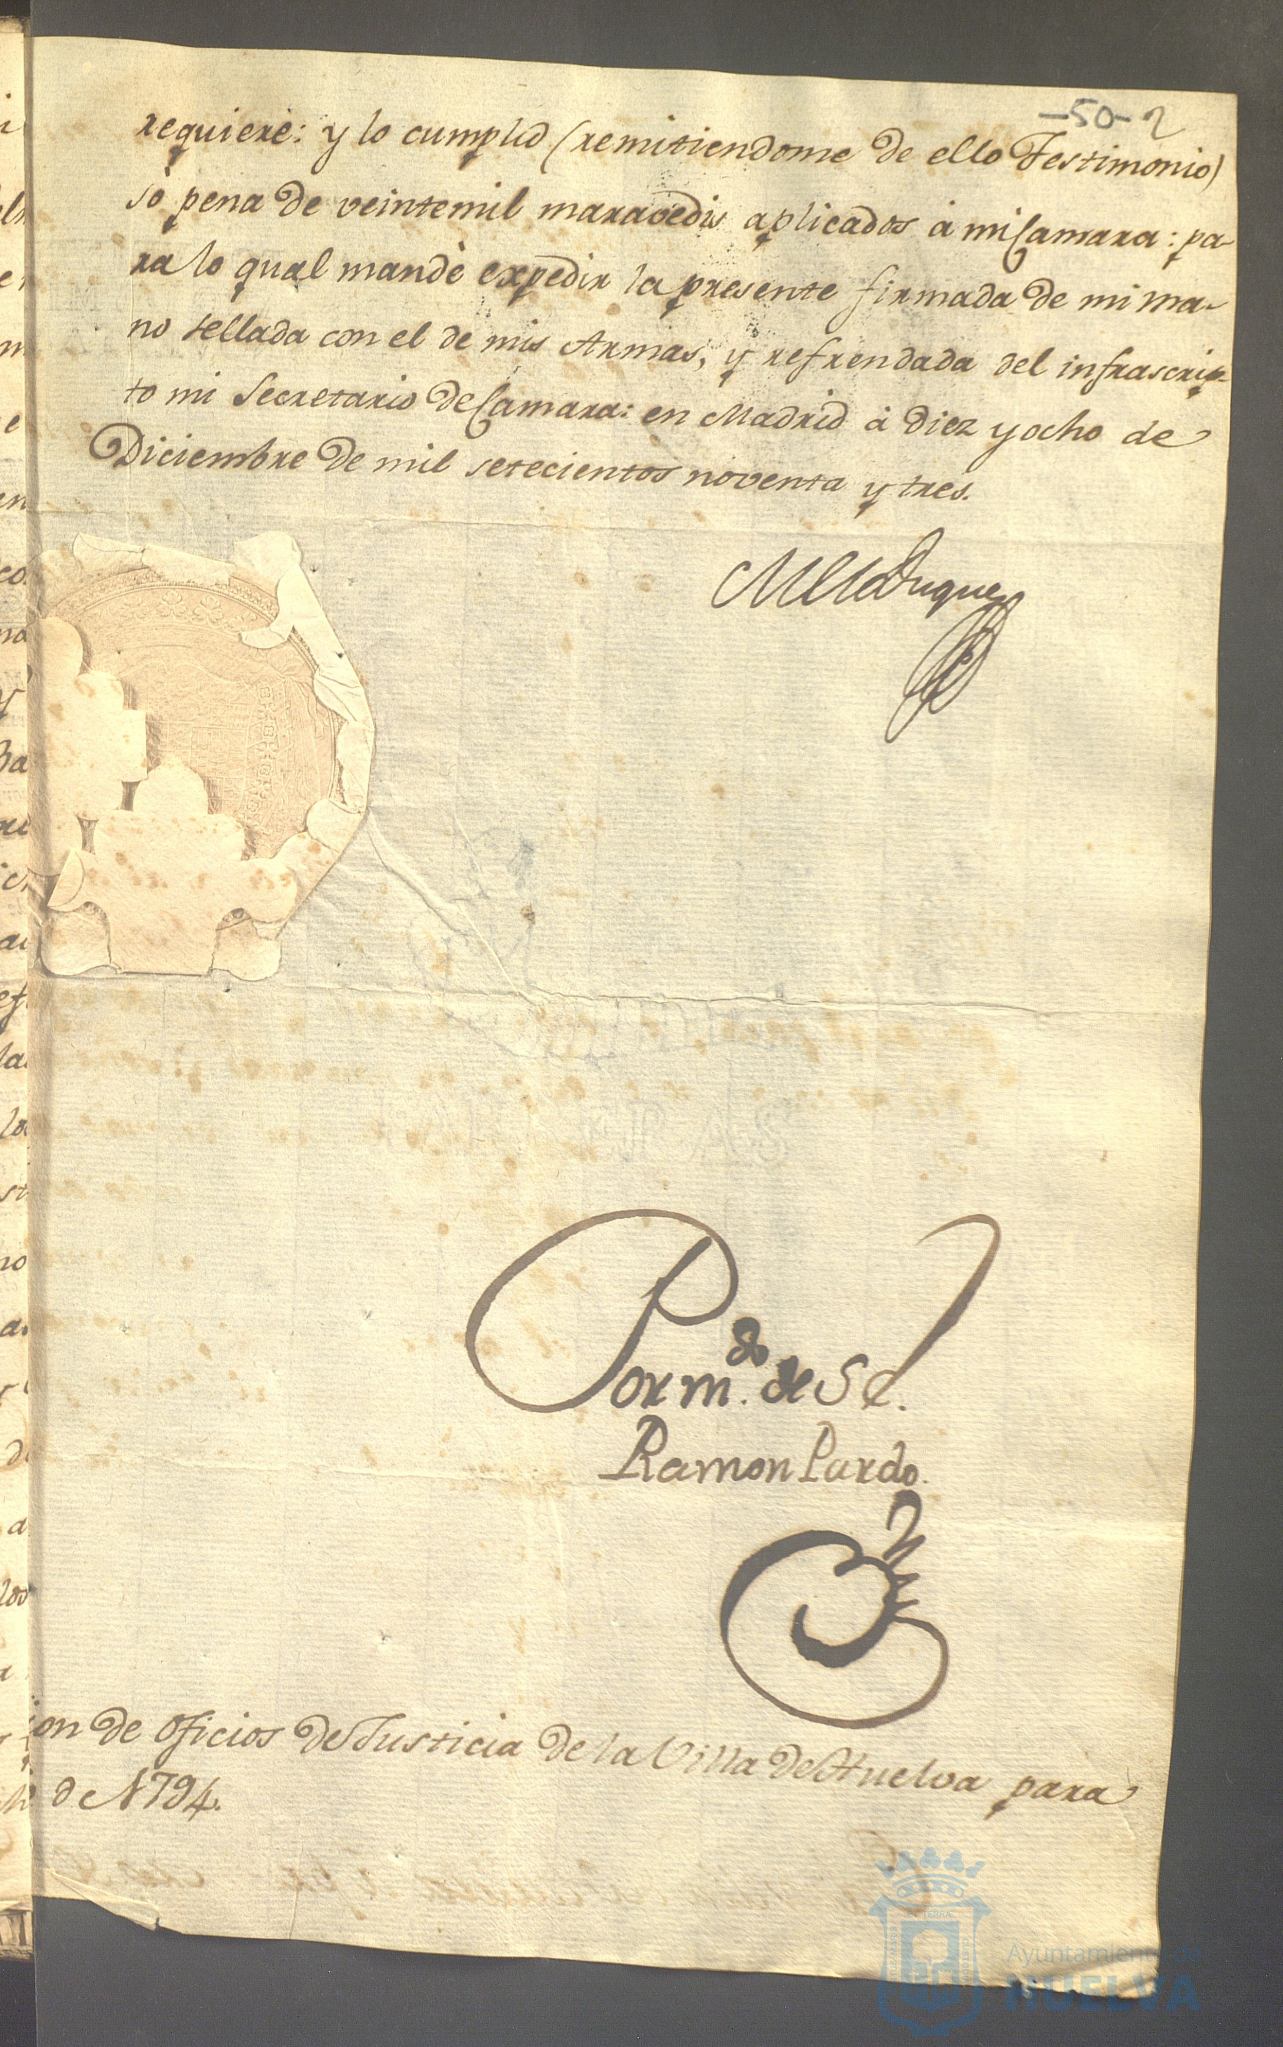 -50- 2
requiere: y lo cumplid (remitiendome de ello Testimonio)
sò pena de veintemil maravedis aplicados á mi Camara: pa-
ra lo qual mandè expedir la presente firmada de mi ma-
no sellada con el de mis Armas, y refrendada del infrascrip-
to mi Secretario de Camara: en Madrid á diez y ocho de
Diciembre de mil setecientos noventa y tres.
Duque
Por m.do de S E.
Ramon Pardo.
on de oficios de Justicia de la Villa de Huelva para
de 1794.
Ayuntamiento de
HUELVA